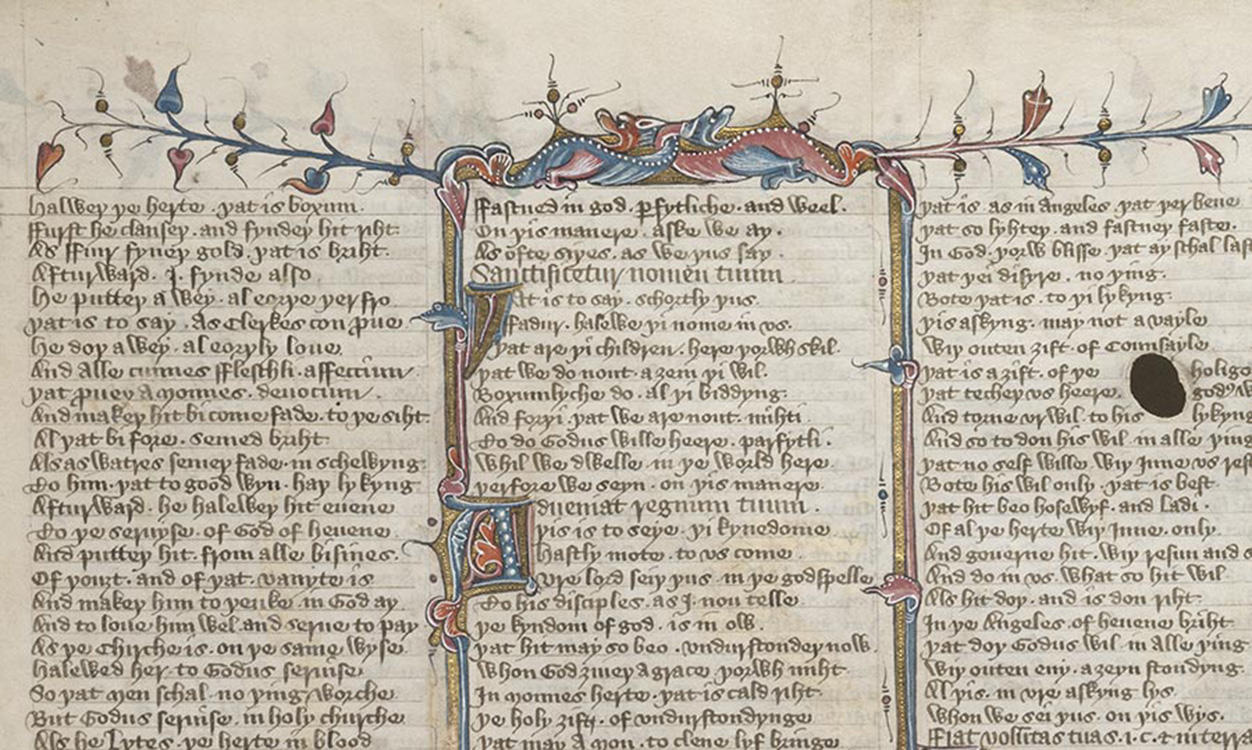 Halweþ þe herte · þat is boxum ·
Ffurst he clanseþ · and fyndeþ hit riht ·
As ffiur fyneþ gold · þat is briht ·
Afturward · I · fynde also
He putteþ a wey · al eorþe þerfro
þat is to say · As Clerkes con proue
He doþ a wey · al eorþly loue
And alle cumes fleschli · affeccium
þat preueþ a monnes · deuocium
And makeþ hit bi come fade · to þe siht ·
Al þat bi fore · semed briht
Als as watres semeþ fade · in schewyng ·
To him · þat to good wyn · haþ lykyng
Afturward · he haleweþ hit euene
To þe seruyse · of God of heuene
And putteþ hit · from alle bisines ·
Of þouȝt · and of þat · vanyte is
And makeþ him to þenke · in God ay
And to loue him wel · and serue to pay ·
As þe Chirche is · on þe same wyse
Halewed her · to Godus seruise
So þat men schal · no þing worche
But Godus seruise · in holy churche
Als he lyteþ · þe herte in blood
Ffastned in god · perfytliche · and weel ·
On þis manere · aske we ay ·
As ofte syþes · as we þus say ·
Sanctificetur nomen tuum
Þat is to say · schortly þus
Ffadur · halewe þi nome in vs ·
þat are þi children · here þorwh skil ·
þat we do nouȝt · aȝeyn þi wil ·
Boxumlyche do · al þi biddyng ·
And forþi · þat we are nouȝt · mihti ·
To do Godus wille heere · parfytli ·
Whil we dwelle · in þe world here
þerfore we seyn · on þis manere
Adueniat regnum tuum ·
Þis is to seye · þi kynedome
Hastly mote · to vs come
Vre lord seiþ þus · in þe godspelle
To his disciples · as I · nou telle
þe kyndom of god · is in ow ·
þat hit may so beo · vndurstondeþ now ·
Whon God ȝiueþ a grace · þorwh miht
In monnes herte · þat is cald riht
þe holy ȝift · of vndurstondynge
þat may a mon · to clene lyf bringe
þat is · as in Angeles · þat þer bene
þat so lyhteþ · and fastneþ faste ·
In God · þorw blisse · þat ay schal last
þat þei disyre · no þing ·
Bote þat is · to þi lykyng ·
þis askyng · may not a vayle
Wiþ outen ȝift · of Counsayle
þat is a ȝift · of þe holigo
þat techeþ vs heere godus w
And torne vr wil · to his lykyng
And so to don his wil · in alle þing
þat no self wille · wiþ Inne vs res
Bote his wil only · þat is best ·
þat hit beo hosewyf · and ladi ·
Of al þe herte wiþ Inne · only ·
And gouerne hit · wiþ resun and s
And do in vs · what so hit wil
Als hit doþ · and is don riht ·
In þe Angeles · of heuene briht ·
þat doþ Godus wil · in alle þing
Wiþ outen eny · aȝeyn stondyng ·
Al þis · in vre askyng lys ·
Whon we sei þus · on þis wys ·
Fiat voluntas tua s · i · c · et in terra